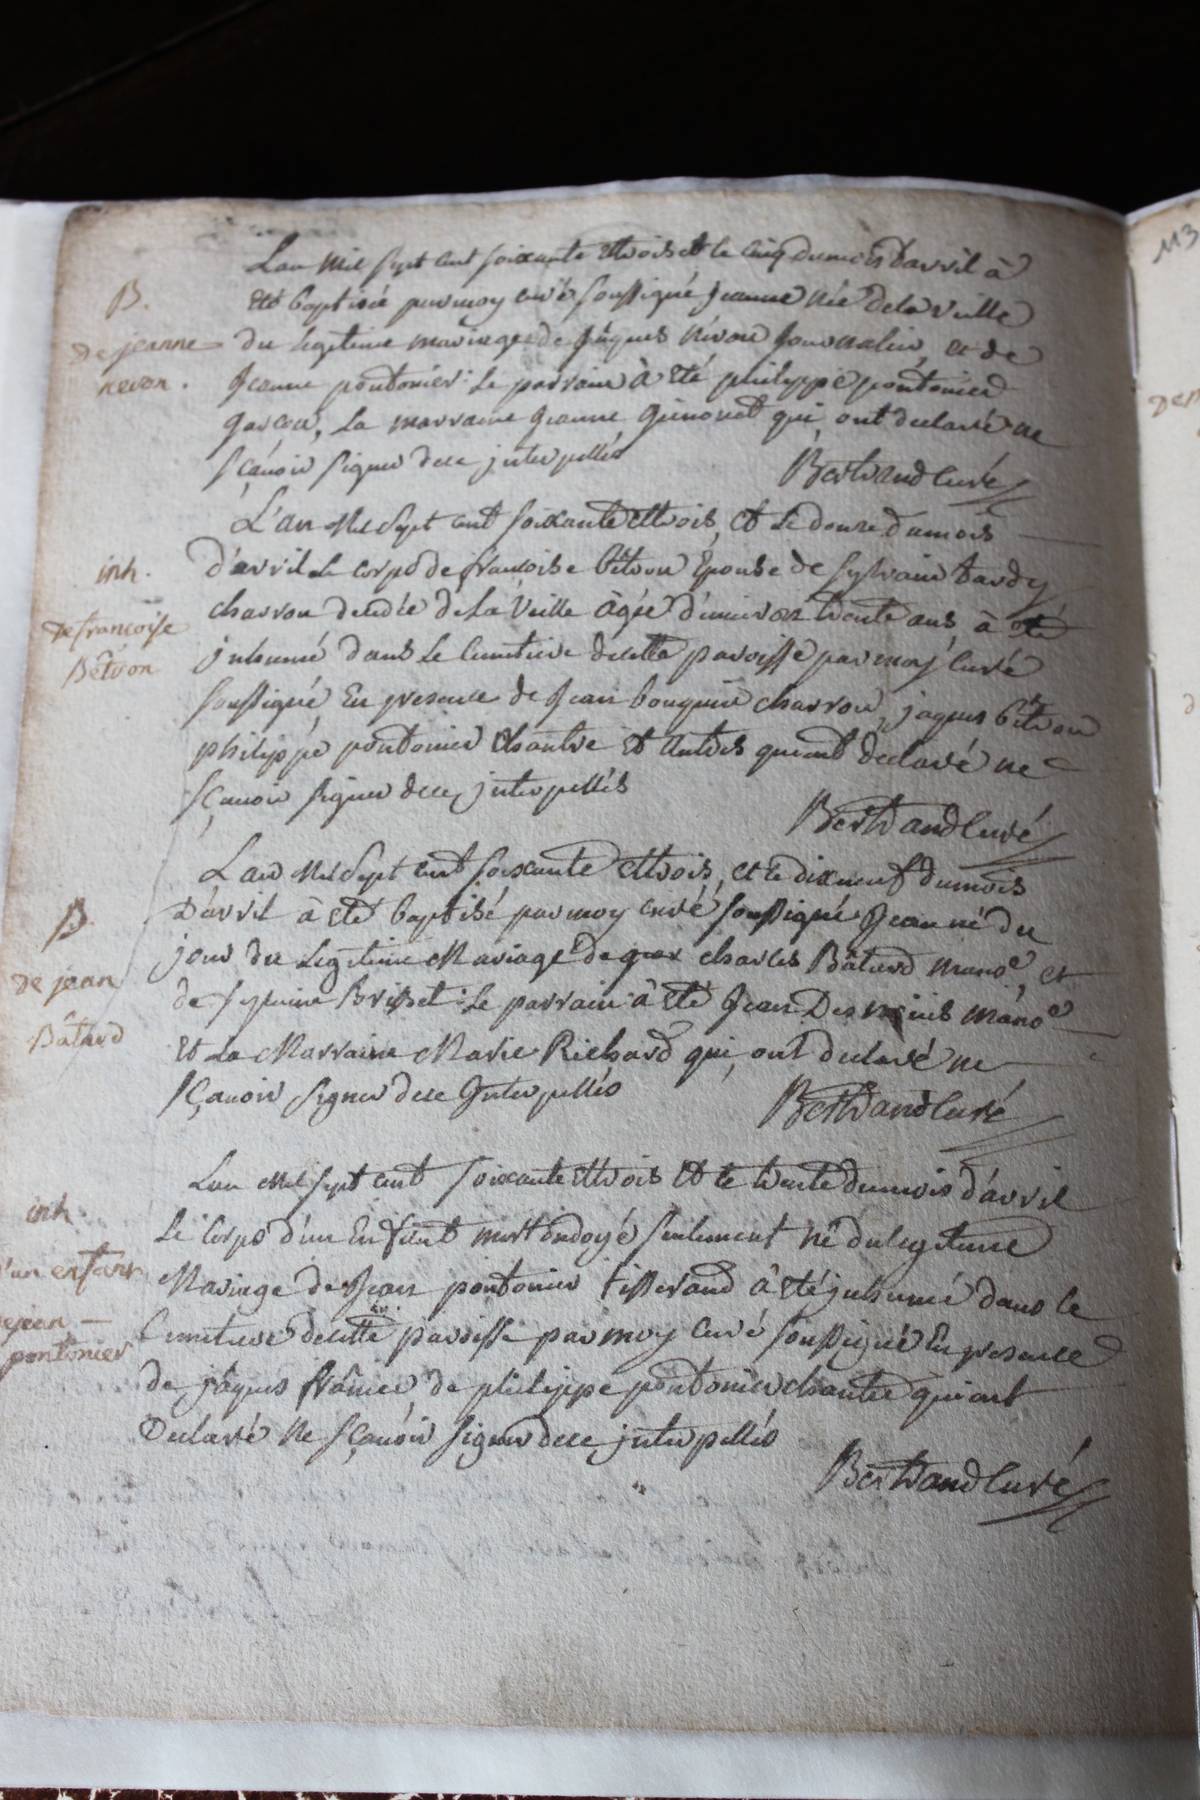 113
B.
De jeanne
nevon.
L'an Mil sept cent soixante et trois et le cinq du mois d'avril à
eté baptisée par moy curé soussigné jeanne née de la veille
du legitime mariage de jâques névon journalier, et de
Jeanne pontonier : Le parrain à eté philippe pontonier
garçon, La marraine jeanne qui ont declaré ne
sçauoir signer de ce interpellés
Bertrand Curé
inh.
De françoise
Bêtron
L'an Mil sept cent soixante et trois, et Le douze du mois
d'avril Le corps de françoise bêtron Epouse de sylvain tardy
charron decedée de La veille âgée d'environ trente ans à été
inhumé dans Le Cimetiere de cette paroisse par moy Curé
soussigné, En presence de Jean bouquin charron, jaques bêtron
philippe pontonier chantre et autres qui ont declaré ne
sçauoir signer de ce interpellés
Bertrand Curé
B.
De jean
Bâtard
L'an Mil sept cent soixante et trois, et le dixneuf du mois
D'avril à eté baptisé par moy curé soussigné Jean né du
jour du Legitime Mariage de charles Bâtard mano^e, et
de Brisset : Le parrain à eté Jean Des mano^e
Et La Marraine Marie Richard qui, ont declaré ne
sçauoir signer de ce interpellés
Bertrand Curé
inh.
d'un enfant
de jean —
pontonier
L'an Mil sept cent soixante et trois et le trente du mois d'avril
Le Corps d'un Enfant mort Ondoyé seulement né du legitime
Mariage de Jean pontonier tisserand à eté inhumé dans le
Cimetiere de cette paroisse par moy curé soussigné En presence
de jâques de philippe pontonier chantre qui ont
Declaré Ne sçauoir signer de ce interpellés
Bertrand Curé